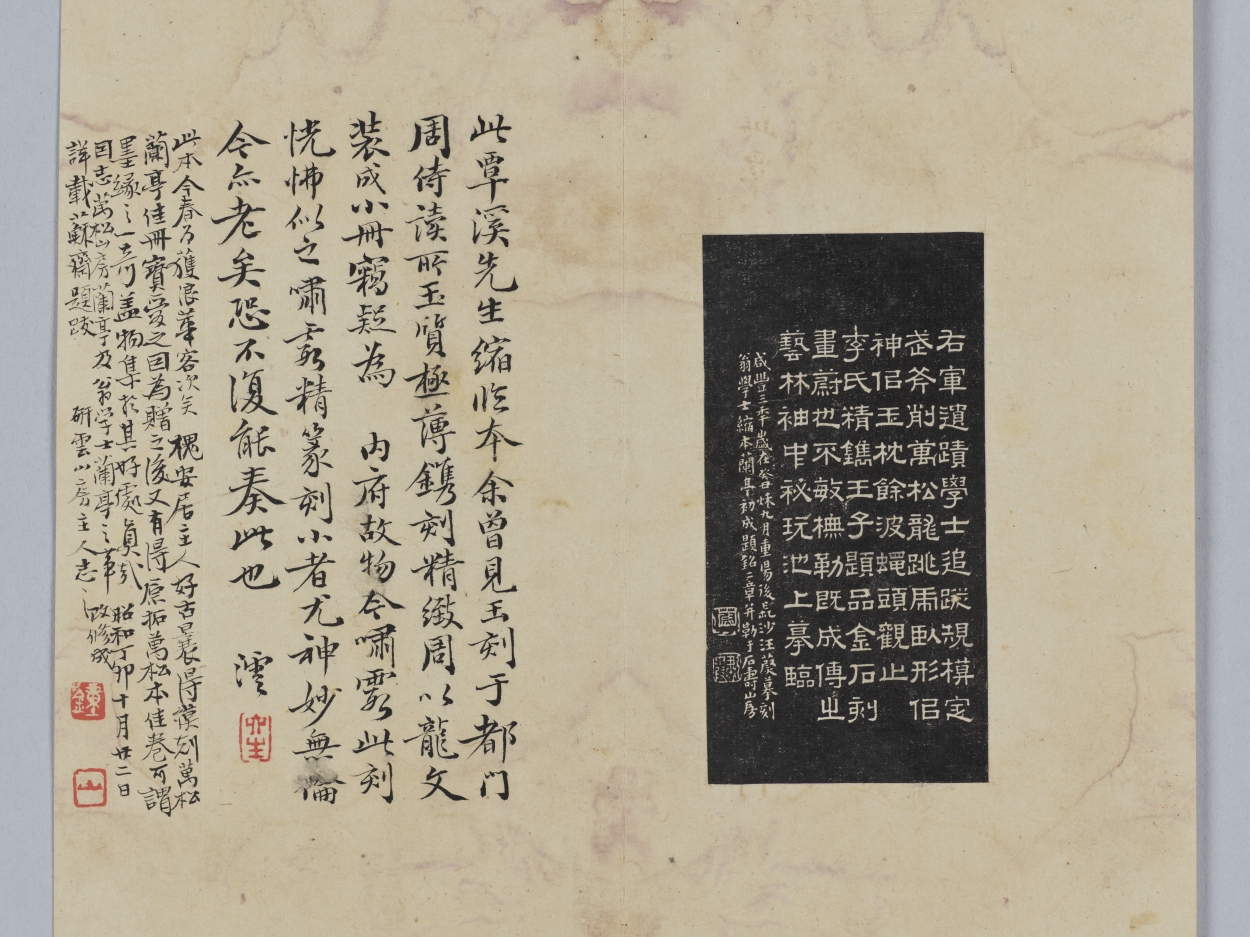 右軍遺蹟學士追蹤規模定
武斧削萬松龍跳虎臥形佀
神佀玉枕餘波蠅頭觀止
李氏精鐫王子題品金石刻
畫蔚也不敏橅勒既成傳之
藝林袖中祕玩池上摹臨
咸豐三季歲在癸丑秌九月重昜後長沙汪蔚摹刻
翁學士縮本蘭亭初成題銘二章并勒于石壽山房
此覃溪先生縮臨本余曾見玉刻于都门
周侍讀所玉質極薄鐫刻精緻周以龍文
裝成小冊竊疑為 內府故物今嘯霞此刻
恍怫似之嘯霞精篆刻小者尤神妙無倫
今亦老矣恐不復能奏此也 澐
此本今春乃獲浪華客次矣 槐安居主人好古曩得漢刻萬松
蘭亭佳冊寶愛之因為贈之後又有得原拓萬松本佳卷可謂
墨緣之一奇蓋物集於其好處真哉 昭和丁卯十月廿二日
因志萬松山房蘭亭及翁學士蘭亭之事 改修成
詳載蘇齋題跋 研雲山房主人志